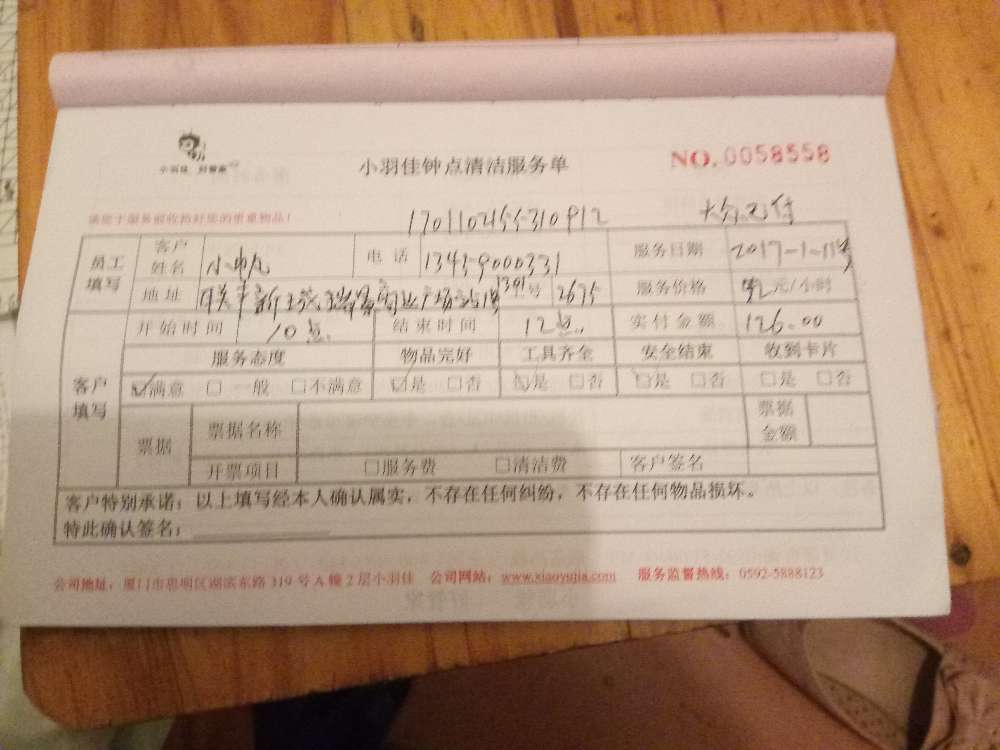 小羽佳 好管家
小羽佳钟点清洁服务单
NO. 0058558
请您于服务前收拾好您的贵重物品！
170110215310912
员工填写 客户姓名 小帆 电话 13459000331 服务日期 2017-1-11号
地址 联丰新城瑞景商业广场 1391号 2675 服务价格 42元/小时
客户填写 开始时间 10点 结束时间 12点 实付金额 126.00
服务态度 物品完好 工具齐全 安全结束 收到卡片
☑满意 □一般 □不满意 ☑是 □否 ☑是 □否 ☑是 □否 □是 □否
票据 票据名称 票据金额
开票项目 □服务费 □清洁费 客户签名
客户特别承诺：以上填写经本人确认属实，不存在任何纠纷，不存在任何物品损坏。
特此确认签名：
公司地址：厦门市思明区湖滨东路319号A幢2层小羽佳 公司网站：www.xiaoyujia.com 服务监督热线：0592-5888123